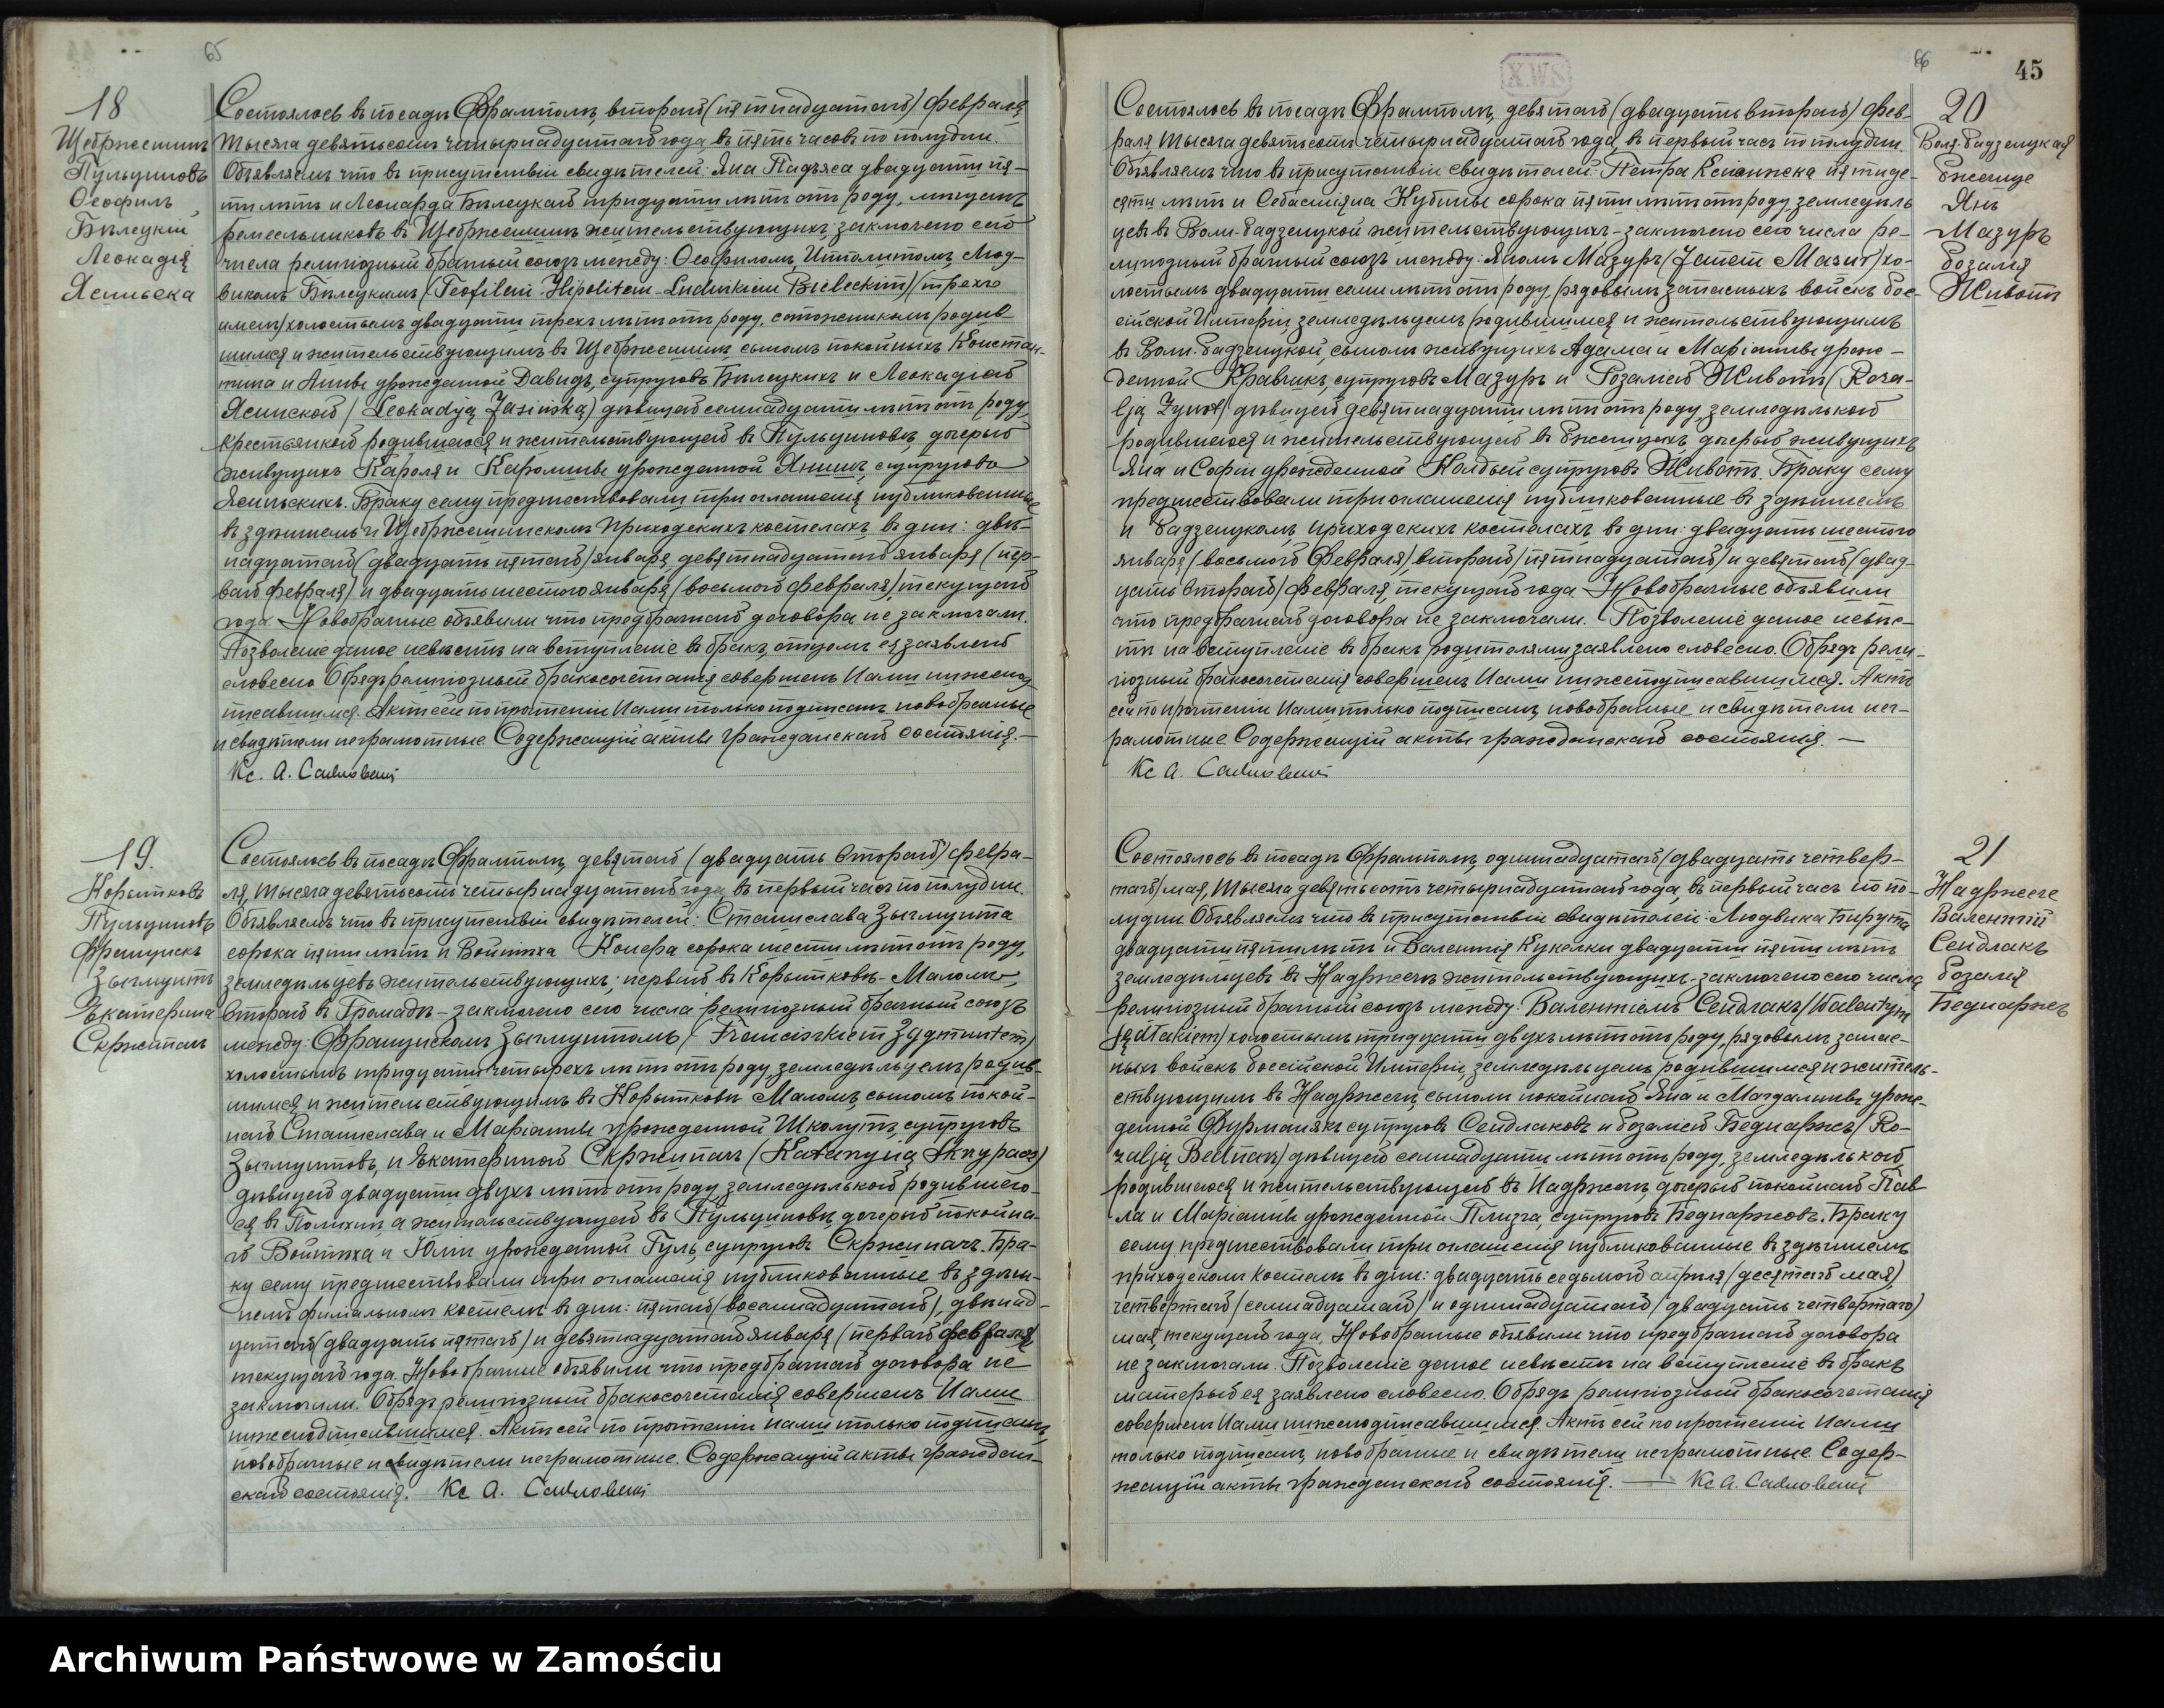 65
18
Щебржешинъ
Пульциновъ
Ѳеофилъ
Бѣлецкій
Леокадія
Ясинска
Состоялось въ посадѣ Фрамполѣ, второго (пятнадцатаго) февраля
тысяча девятьсотъ четырнадцатаго года, въ пять часовъ по полудни.
Объявляемъ что въ присутствіи свидѣтелей: Яна Пидъяса двадцати пя-
ти лѣтъ и Леонарда Бѣлецкаго тридцати лѣтъ отъ роду, мѣщанъ
ремесльниковъ въ Щебржешинѣ жительствующихъ заключено сего
числа религіозный брачный союзъ между: Ѳеофиломъ, Ипполитомъ, Люд-
викомъ Бѣлецкимъ (Teofilem-Hipolitem-Ludwikiem Bieleckim) (трехъ
именъ) холостымъ двадцати трехъ лѣтъ отъ роду, сапожникомъ родив
шимся и жительствующимъ въ Щебржешинѣ сыномъ покойныхъ Констан-
тина и Анны урожденной Давидъ, супруговъ Бѣлецкихъ и Леокадіею
Ясинской (Leokadją Jasińską) дѣвицей семнадцати лѣтъ отъ роду,
крестьянкой родившеюся и жительствующей въ Пульциновѣ, дочерью
живущихъ Кароля и Каролины урожденной Янишъ, супруговъ
Ясинскихъ. Браку сему предшествовали три оглашенія публикованные
въ здѣшнемъ и Щебржешинскомъ приходскихъ костелахъ въ дни: двѣ-
надцатаго (двадцать пятаго) января, девятнадцатаго января (пер-
ваго февраля) и двадцать шестого января (восьмого февраля) текущаго
года. Новобрачные объявили что предбрачнаго договора не заключали.
Позволеніе даное невѣстѣ на вступленіе въ бракъ, отцомъ ея заявлено
словесно. Обрядъ религіозный бракосочетанія совершенъ Нами нижепод-
писавшимся. Актъ сей по прочтеніи Нами только подписанъ, новобрачные
и свидѣтели неграмотные. Содержащій акты гражданскаго состоянія.—
Кс. А.
19.
Корытковъ
Пульциновъ
Францискъ
Зыгмунтъ
Екатерина
Скржипачъ
Состоялось въ посадѣ Фрамполѣ, девятаго (двадцать второго) февра-
ля, тысяча девятьсотъ четырнадцатаго года, въ первый часъ по полудни.
Объявляемъ что въ присутствіи свидѣтелей: Станислава Зыгмунта
сорока пяти лѣтъ и Войтѣха Конефа сорока шести лѣтъ отъ роду,
земледѣльцевъ жительствующихъ; первый въ Корытковѣ-Маломъ,
второй въ Громадѣ – заключено сего числа религіозный брачный союзъ
между: Францискомъ Зыгмунтомъ (Franciszkiem Zygmuntem)
холостымъ тридцати четырехъ лѣтъ отъ роду, земледѣльцемъ родив-
шимся и жительствующимъ въ Корытковѣ Маломъ, сыномъ покой-
наго Станислава и Маріанны урожденной Школутъ, супруговъ
Зыгмунтовъ, и Екатериной Скржипачъ (Katarzyną Skrzypacz)
дѣвицей двадцати двухъ лѣтъ отъ роду земледѣлькой родившею-
ся въ Полихнѣ а жительствующей въ Пульциновѣ дочерью покойна-
го Войтѣха и Юліи урожденной Гуль, супруговъ Скржипачъ. Бра-
ку сему предшествовали три оглашенія публикованные въ здѣш-
немъ филіальномъ костелѣ въ дни: пятаго (восемнадцатаго), двѣнад-
цатаго (двадцать пятаго) и девятнадцатаго января (перваго февраля)
текущаго года. Новобрачные объявили что предбрачнаго договора не
заключили. Обрядъ религіозный бракосочетанія совершенъ Нами
нижеподписавшимся. Актъ сей по прочтеніи нами только подписанъ,
новобрачные и свидѣтели неграмотные. Содержащій акты граждан-
скаго состоянія. Кс А.
XWS
66
45
20
Воля-Радзецкая
Ржечице
Янъ
Мазуръ
Розалія
Животъ
Состоялось въ посадѣ Фрамполѣ, девятаго (двадцать второго) фев-
раля, тысяча девятьсотъ четырнадцатаго года, въ первый часъ по полудни.
Объявляемъ что въ присутствіи свидѣтелей: Петра пятиде-
сяти лѣтъ и Себастіяна Кубины сорока пяти лѣтъ отъ роду, земледѣль
цевъ въ Воли-Радзецкой жительствующихъ – заключено сего числа ре-
лигіозный брачный союзъ между: Яномъ Мазуръ (Janem Mazur) хо-
лостымъ двадцати семи лѣтъ отъ роду, рядовымъ запасныхъ войскъ Рос-
сійской Имперіи, земледѣльцемъ родившимся и жительствующимъ
въ Воли-Радзецкой, сыномъ живущихъ Адама и Маріанны урож-
денной Кравчикъ, супруговъ Мазуръ и Розаліею Животъ (Roza-
lją Żywot) дѣвицей девятнадцати лѣтъ отъ роду, земледѣлькой
родившеюся и жительствующей въ Ржечицахъ, дочерью живущихъ
Яна и Софіи урожденной Колдый супруговъ Животъ. Браку сему
предшествовали три оглашенія публикованные въ здѣшнемъ
и Радзецкомъ приходскихъ костелахъ въ дни: двадцать шестого
января (восьмого февраля) второго (пятнадцатаго) и девятаго (двад-
цать второго) февраля, текущаго года. Новобрачные объявили
что предбрачнаго договора не заключали. Позволеніе даное невѣс-
тѣ на вступленіе въ бракъ родителями заявлено словесно. Обрядъ рели-
гіозный бракосочетанія совершенъ Нами нижеподписавшимся. Актъ
сей по прочтеніи Нами только подписанъ, новобрачные и свидѣтели нег-
рамотные. Содержащій акты гражданскаго состоянія. —
Кс А.
21
Надржече
Валентій
Сендлакъ
Розалія
Беднаржъ
Состоялось въ посадѣ Фрамполѣ, одиннадцатаго (двадцать четвер-
таго) мая, тысяча девятьсотъ четырнадцатаго года, въ первый часъ по по-
лудни. Объявляемъ что въ присутствіи свидѣтелей: Людвика Бирута
двадцати пяти лѣтъ и Валентія Кукелки двадцати пяти лѣтъ
земледѣльцевъ въ Надржечѣ жительствующихъ – заключено сего числа
религіозный брачный союзъ между: Валентіемъ Сендлакъ (Walentym
Sędłakiem) холостымъ тридцати двухъ лѣтъ отъ роду, рядовымъ запас-
ныхъ войскъ Россійской Имперіи, земледѣльцемъ родившимся и житель-
ствующимъ въ Надржечѣ, сыномъ покойнаго Яна и Магдалины урож-
денной Фурманякъ супруговъ Сендлаковъ и Розаліей Беднаржъ (Ro-
zalją Bednarz) дѣвицей семнадцати лѣтъ отъ роду, земледѣлькой
родившеюся и жительствующей въ Надржечѣ, дочерью покойнаго Пав
ла и Маріанны урожденной Плизга, супруговъ Беднаржовъ. Браку
сему предшествовали три оглашенія публикованные въ здѣшнемъ
приходскомъ костелѣ въ дни: двадцать седьмого апрѣля (десятаго мая)
четвертаго (семнадцатаго) и одиннадцатаго (двадцать четвертаго)
мая, текущаго года. Новобрачные объявили что предбрачнаго договора
не заключали. Позволеніе даное невѣстѣ на вступленіе въ бракъ
матерью ея заявлено словесно. Обрядъ религіозный бракосочетанія
совершенъ Нами нижеподписавшимся. Актъ сей по прочтеніи Нами
только подписанъ, новобрачные и свидѣтели неграмотные. Содер-
жащій акты гражданскаго состоянія. — Кс А.
Archiwum Państwowe w Zamościu